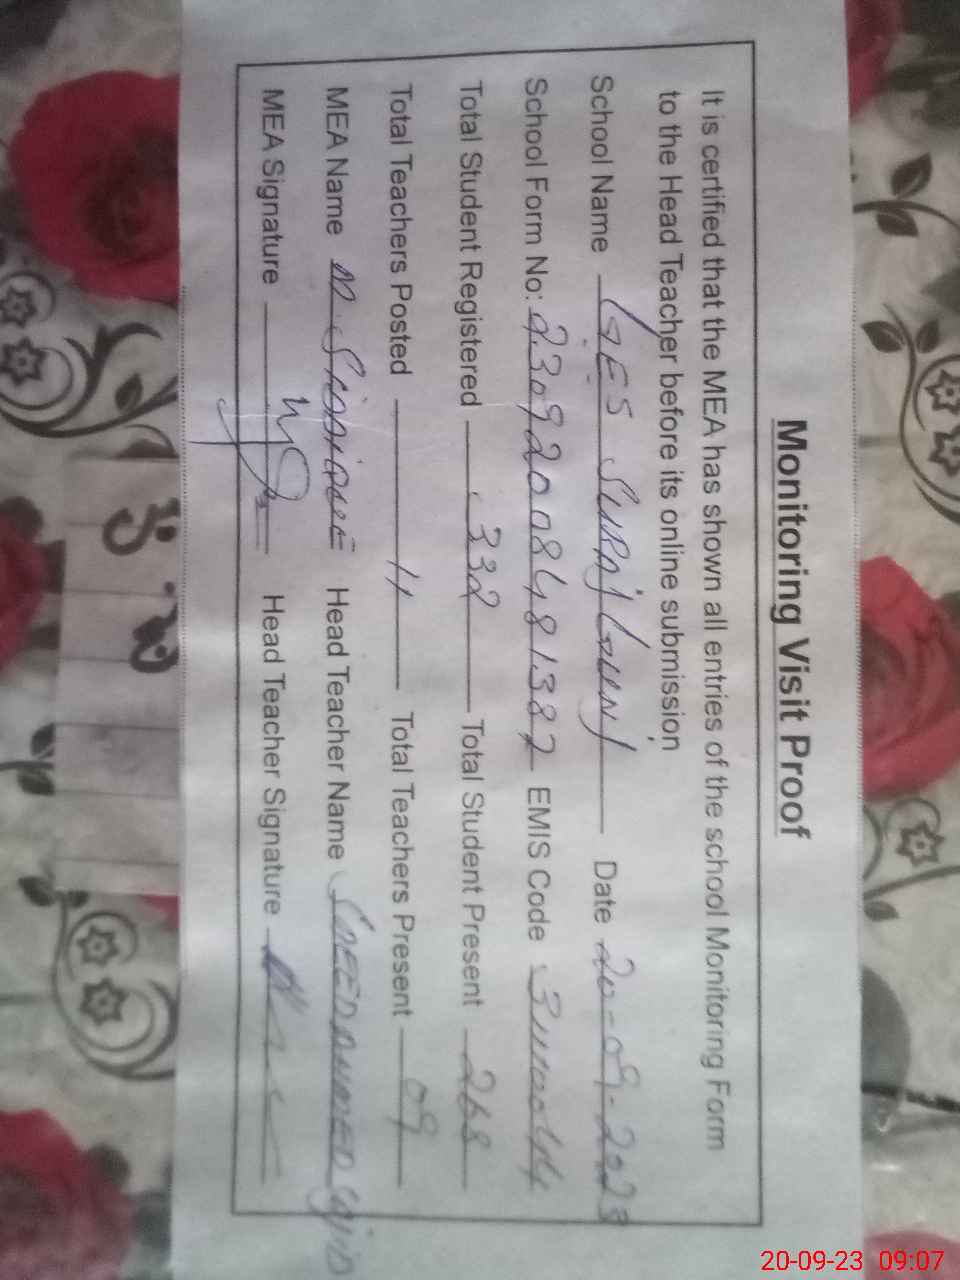 Monitoring Visit Proof
It is certified that the MEA has shown all entries of the school Monitoring Form
to the Head Teacher before its online submission
School Name GES Date 20-09-2023
School Form No: 23092008481382 EMIS Code
Total Student Registered 332 Total Student Present 268
Total Teachers Posted 11 Total Teachers Present 09
MEA Name M. Siddique Head Teacher Name
MEA Signature Head Teacher Signature
20-09-23 09:07